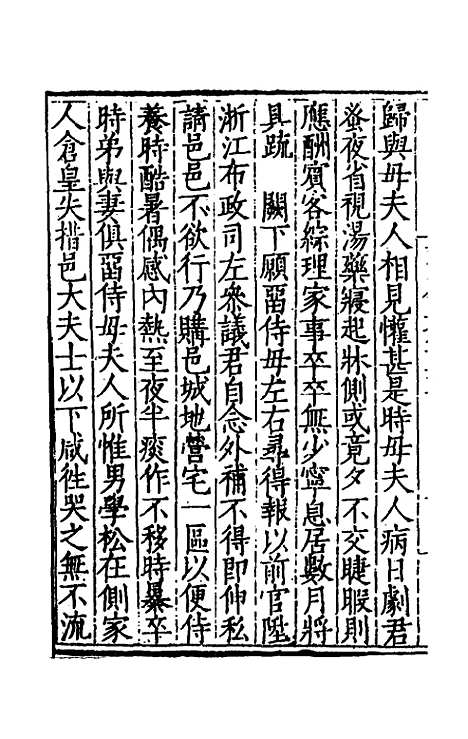 歸與母夫人相見懽甚是時母夫人病日劇君
蚤夜省視湯藥寢起牀側或竟夕不交睫暇則
應酬賓客綜理家事卒卒無少寧息居數月將
具疏　闕下願畱侍母左右尋得報以前官陞
浙江布政司左叅議君自念外補不得即伸私
請邑邑不欲行乃購邑城地營宅一區以便侍
養時酷暑偶感內熱至夜半痰作不移時暴卒
時弟與妻俱畱侍母夫人所惟男學松在側家
人倉皇失措邑大夫士以下咸徃哭之無不流